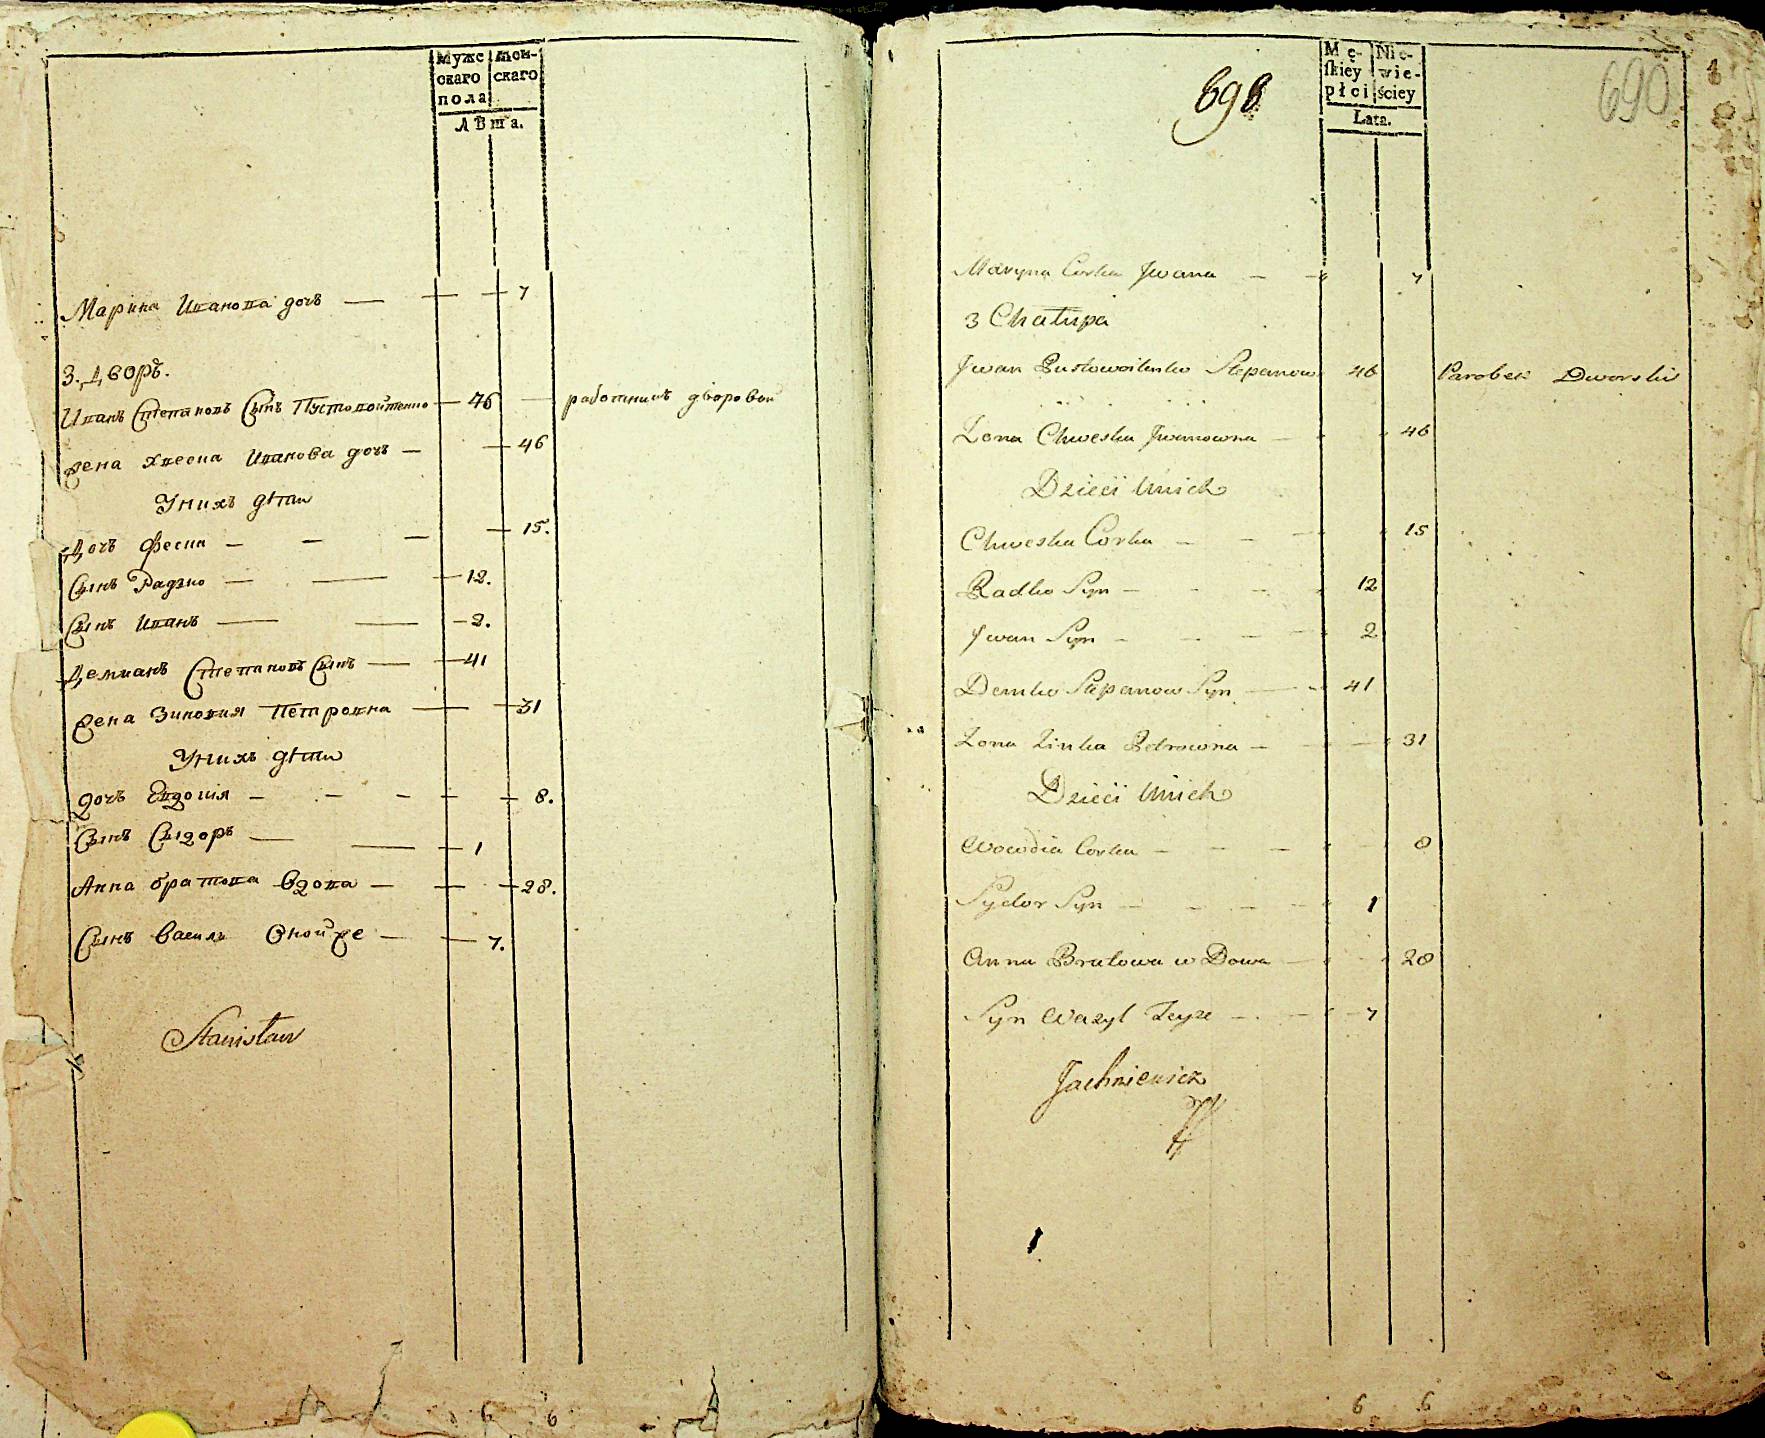 Муже
скаго
пола
Жен-
скаго
Лѣта.
Марина Иванова дочь — 7
3. Дворъ.
Иванъ Степановъ Сынъ Пустовойтенко — 46 — работникъ дворовой
Жена Хвеска Иванова дочь — 46
У нихъ дѣти
Дочь Феска — — — 15.
Сынъ Радько — — 12.
Сынъ Иванъ — — 2.
Демианъ Степановъ Сынъ — 41
Жена Зиновия Петровна — 31
У нихъ дѣти
дочь Евдокія — — — 8.
Сынъ Сидоръ — — 1
Анна братова вдова — 28.
Сынъ Василь Оной же — 7.
Stanisław
6 6
698
690
Mę-
skiey
płci
Nie-
wie-
ściey
Lata.
Maryna Corka Jwana — — 7
3 Chałupa
Jwan Pustowoitenko Stepanow 46 Parobek Dworski
Zona Chweska Jwanowna — 46
Dzieci Unich
Chweska Corka — — — 15
Radko Syn — — — 12
Jwan Syn — — — 2
Demko Stepanow Syn — 41
Zona Zinka Petrowna — — 31
Dzieci Unich
Wowdia Corka — — — 8
Sydor Syn — — — 1
Anna Bratowa w Dowa — 28
Syn Wazyl Teyze — — 7
Jachniewicz
6 6